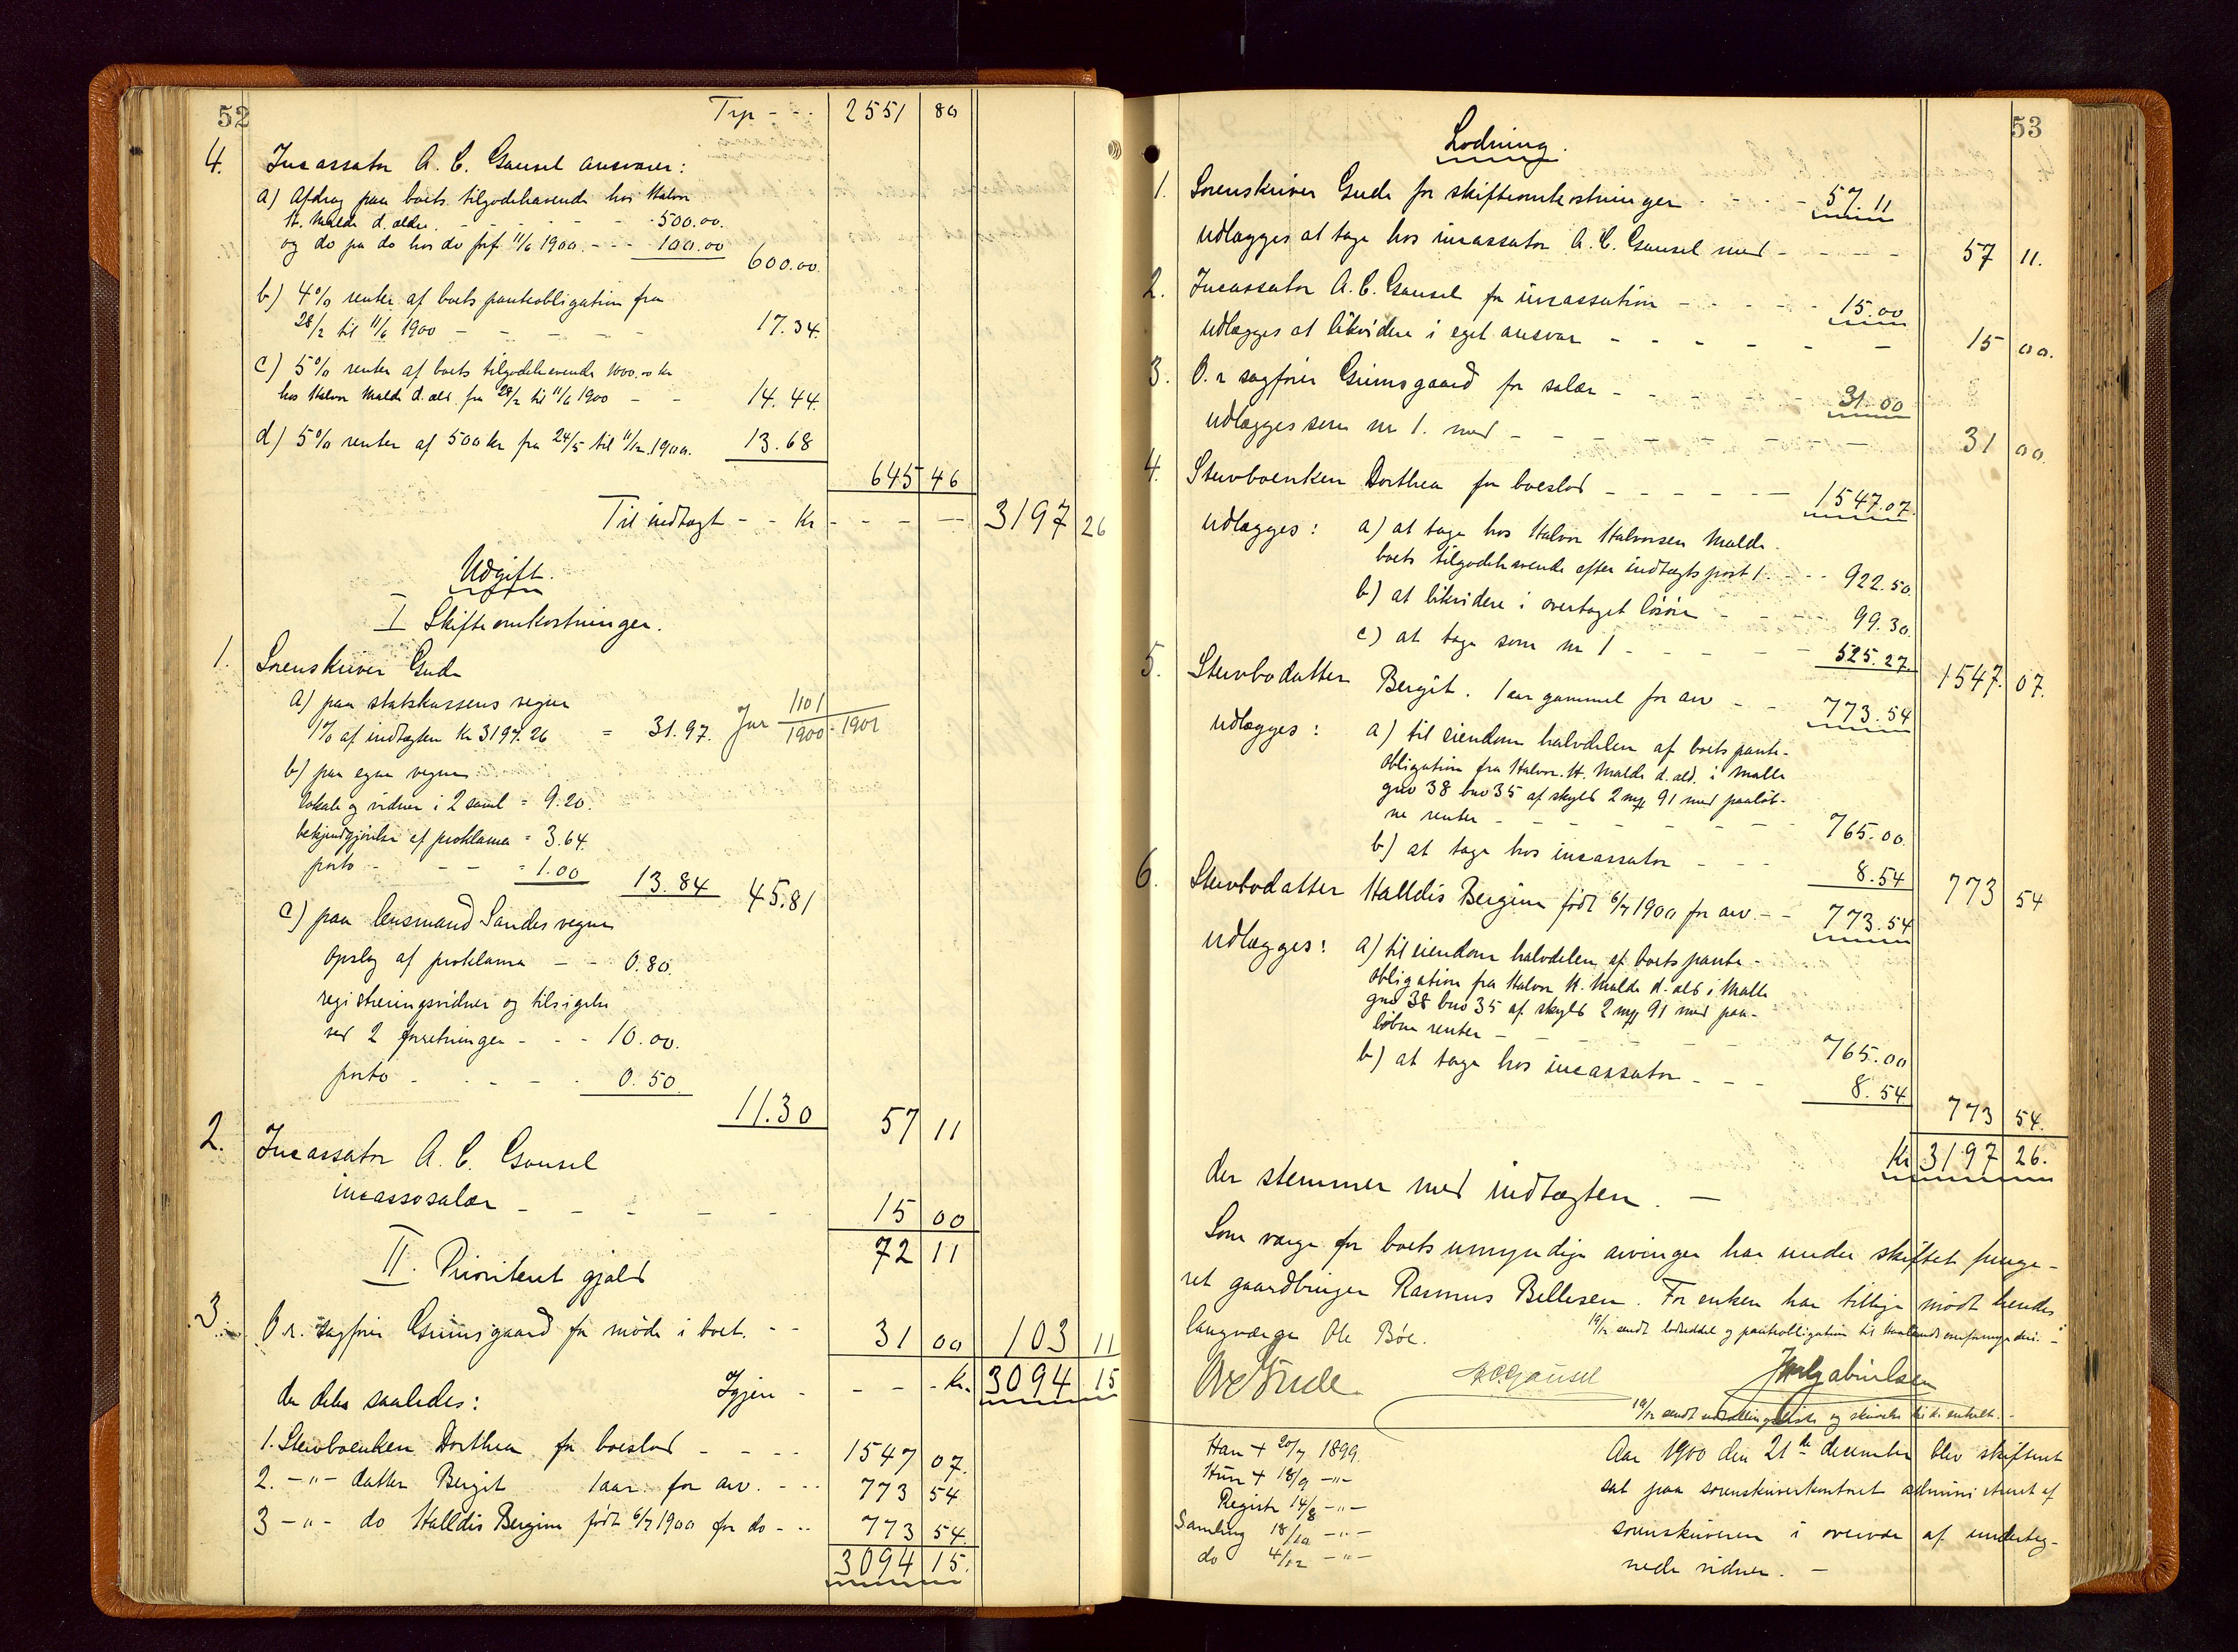 52
Trp - - - 2551 80
4. Incassator A. C. Gausel ansvarer:
a) Afdrag paa boets tilgodehavende hos Halvor
H. Malde d. ældre. - - - - - 500.00.
og do paa do hos do forf. 11/6 1900. - - - 100.00 600.00.
b) 4% renter af boets panteobligation fra
28/2 til 11/6 1900 - - - - - 17.34.
c) 5% renter af boets tilgodehavende 1000.00 kr
hos Halvor Malde d. æld. fra 28/2 til 11/6 1900 - - 14.44.
d) 5% renter af 500 kr fra 24/5 til 11/12 1900. 13.68
645 46
Til indtægt - - Kr - - - - 3197 26
Udgift.
I Skifteomkostninger.
1. Sorenskriver Gude
a) paa statskassens vegne
1% af indtægten Kr 3197.26 = 31.97. Jnr 1101/1900-1901
b) paa egne vegne
lokale og vidner i 2 saml = 9.20.
bekjendtgjørelse af proklama = 3.64.
porto - - - = 1.00 13.84 45.81
c) paa lensmand Sandes vegne
opslag af proklama - - 0.80.
registreringsvidner og tilsigelse
ved 2 forretninger - - - 10.00.
porto - - - - - 0.50
11.30 57 11
2. Incassator A. C. Gausel
incassosalær - - - - - 15 00
72 11
II. Prioriteret gjæld
3. O.r. sagfører Grimsgaard for møde i boet. - - 31 00 103 11
Igjen - - - - Kr. 3094 15
der deles saaledes:
1. Stervboenken Dorthea for boeslod - - - - 1547 07.
2. -"- datter Bergit 1 aar for arv. - - - 773 54
3 -"- do Halldis Bergine født 6/7 1900 for do - - - 773 54.
3094 15.
53
Lodning.
1. Sorenskriver Gude for skifteomkostninger - - - - 57.11
udlægges at tage hos incassator A. C. Gausel med - - - - - 57 11.
2. Incassator A. C. Gausel for incassation - - - - - 15.00
udlægges at likvidere i eget ansvar - - - - - - 15 00.
3. O.r sagfører Grimsgaard for salær - - - - - 31.00
udlægges som nr 1. med - - - - - - - 31 00.
4. Stervboenken Dorthea for boeslod - - - - - - 1547.07.
udlægges: a) at tage hos Halvor Halvorsen Malde
boets tilgodehavende efter indtægtspost 1. - - - 922.50.
b) at likvidere i overtaget løsøre - - - - 99.30.
c) at tage som nr 1 - - - - - 525.27. 1547. 07.
5. Stervbodatter Bergit. 1 aar gammel for arv - - 773.54
udlægges: a) til eiendom halvdelen af boets pante-
obligation fra Halvor H. Malde d. æld. i Malle
gno 38 bno 35 af skyld 2 mrk 91 med paaløb-
ne renter - - - - - - - 765.00.
b) at tage hos incassator - - - 8.54 773 54
6. Stervbodatter Halldis Bergine født 6/7 1900 for arv. - - 773.54
udlægges: a) til eiendom halvdelen af boets pante-
obligation fra Halvor H. Malde d. æld i Malle
gno 38 bno 35 af skyld 2 mrk 91 med paa-
løbne renter - - - - - 765.00
b) at tage hos incassator - - - 8.54 773 54.
Kr 3197 26.
der stemmer med indtægten. -
Som værge for boets umyndige arvinger har under skiftet funge-
ret gaardbruger Rasmus Bellesen. For enken har tillige mødt hendes
laugværge Ole Bøe. 19/12 sendt lodseddel og panteobligation til
Ove Gude. A. C. Gausel Gabrielsen
19/12 sendt og til enken. -
Han + 20/7 1899.
Hun + 18/9 -"-
Registr 14/8 -"-
Samling 18/10 -"-
do 4/12 -"-
Aar 1900 den 21de december blev skifteret
sat paa sorenskriverkontoret administreret af
sorenskriveren i overvær af underteg-
nede vidner. -